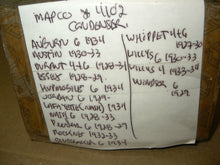 MAPCO # 4102
CONDENSER.
AUBURN 6 1934
AUSTIN 1930-33
DURANT 4+6 1928-31
ESSEX 1928-29.
HUPMOBILE 6 1934
JORDAN 6 1929-
LAFAYETTE (NASH) 1934
NASH 6 1928-33
PEERLESS 6 1928-29
ROCKNE 1932-33
STUDEBAKER 6 1934
WHIPPET 4+6
1927-30
WILLYS 6 1930-33
WILLYS 4 1933-34
WINDSOR 6
1929.